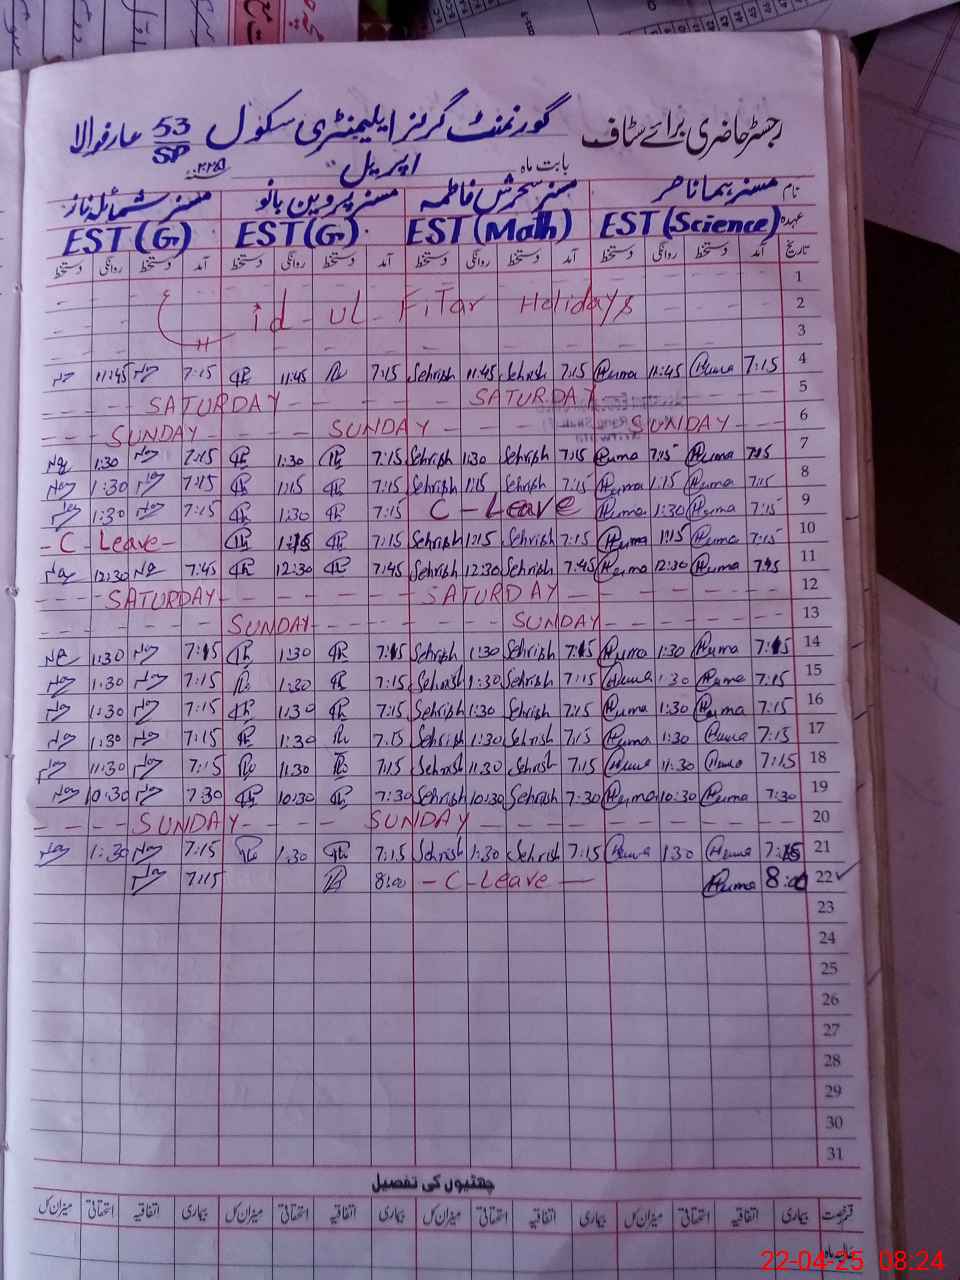 رجسٹر حاضری برائے سٹاف گورنمنٹ گرلز ایلیمنٹری سکول 53/SP عارفوالا
بابت ماہ اپریل
نام مسز ہما ناصر مسز سحرش فاطمہ مسز پروین بانو مسز شمائلہ ناز
عہدہ EST (Science) EST (Math) EST (G) EST (G)
تاریخ آمد دستخط روانگی دستخط آمد دستخط روانگی دستخط آمد دستخط روانگی دستخط آمد دستخط روانگی دستخط
1
id ul FiTar Holidays 2
3
11:45 7:15 11:45 7:15 Sehrish 11:45 Sehrish 7:15 Huma 11:45 Huma 7:15 4
SATURDAY SATURDAY 5
SUNDAY SUNDAY SUNDAY 6
1:30 7:15 1:30 7:15 Sehrish 1:30 Sehrish 7:15 Huma 7:15 Huma 7:15 7
1:30 7:15 1:15 7:15 Sehrish 1:15 Sehrish 7:15 Huma 1:15 Huma 7:15 8
1:30 7:15 1:30 7:15 C - Leave Huma 1:30 Huma 7:15 9
- C - Leave - 1:15 7:15 Sehrish 1:15 Sehrish 7:15 Huma 1:15 Huma 7:15 10
12:30 7:45 12:30 7:45 Sehrish 12:30 Sehrish 7:45 Huma 12:30 Huma 7:45 11
SATURDAY SATURDAY 12
SUNDAY SUNDAY 13
1:30 7:15 1:30 7:15 Sehrish 1:30 Sehrish 7:15 Huma 1:30 Huma 7:15 14
1:30 7:15 1:30 7:15 Sehrish 1:30 Sehrish 7:15 Huma 1:30 Huma 7:15 15
1:30 7:15 1:30 7:15 Sehrish 1:30 Sehrish 7:15 Huma 1:30 Huma 7:15 16
1:30 7:15 1:30 7:15 Sehrish 1:30 Sehrish 7:15 Huma 1:30 Huma 7:15 17
11:30 7:15 11:30 7:15 Sehrish 11:30 Sehrish 7:15 Huma 11:30 Huma 7:15 18
10:30 7:30 10:30 7:30 Sehrish 10:30 Sehrish 7:30 Huma 10:30 Huma 7:30 19
SUNDAY SUNDAY 20
1:30 7:15 1:30 7:15 Sehrish 1:30 Sehrish 7:15 Huma 1:30 Huma 7:15 21
7:15 8:00 - C - Leave - Huma 8:00 22
23
24
25
26
27
28
29
30
31
چھٹیوں کی تفصیل
قسم رخصت بیماری اتفاقیہ استحقاقی میزان کل بیماری اتفاقیہ استحقاقی میزان کل بیماری اتفاقیہ استحقاقی میزان کل بیماری اتفاقیہ استحقاقی میزان کل
22-04-25 08:24